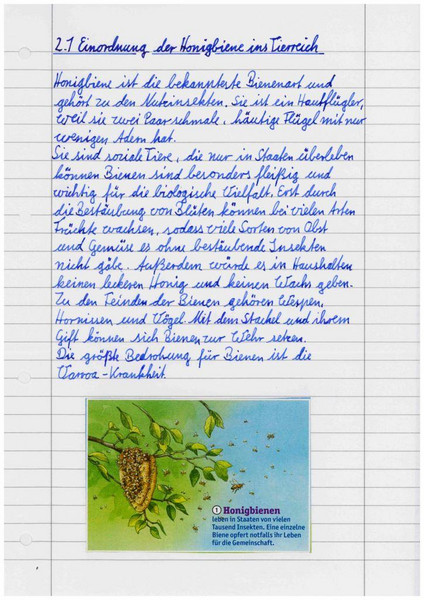 2.1 Einordnung der Honigbiene ins Tierreich
Honigbiene ist die bekannteste Bienenart und
gehört zu den Nutzinsekten. Sie ist ein Hautflügler,
weil sie zwei Paar schmale, häutige Flügel mit nur
wenigen Adern hat.
Sie sind soziale Tiere, die nur in Staaten überleben
können Bienen sind besonders fleißig und
wichtig für die biologische Vielfalt. Erst durch
die Bestäubung von Blüten können bei vielen Arten
Früchte wachsen, sodass viele Sorten von Obst
und Gemüse es ohne bestäubende Insekten
nicht gäbe. Außerdem würde es in Haushalten
keinen leckeren Honig und keinen Wachs geben.
Zu den Feinden der Bienen gehören Wespen,
Hornissen und Vögel. Mit dem Stachel und ihrem
Gift können sich Bienen zur Wehr setzen.
Die größte Bedrohung für Bienen ist die
Varroa-Krankheit.
1 Honigbienen
leben in Staaten von vielen
Tausend Insekten. Eine einzelne
Biene opfert notfalls ihr Leben
für die Gemeinschaft.